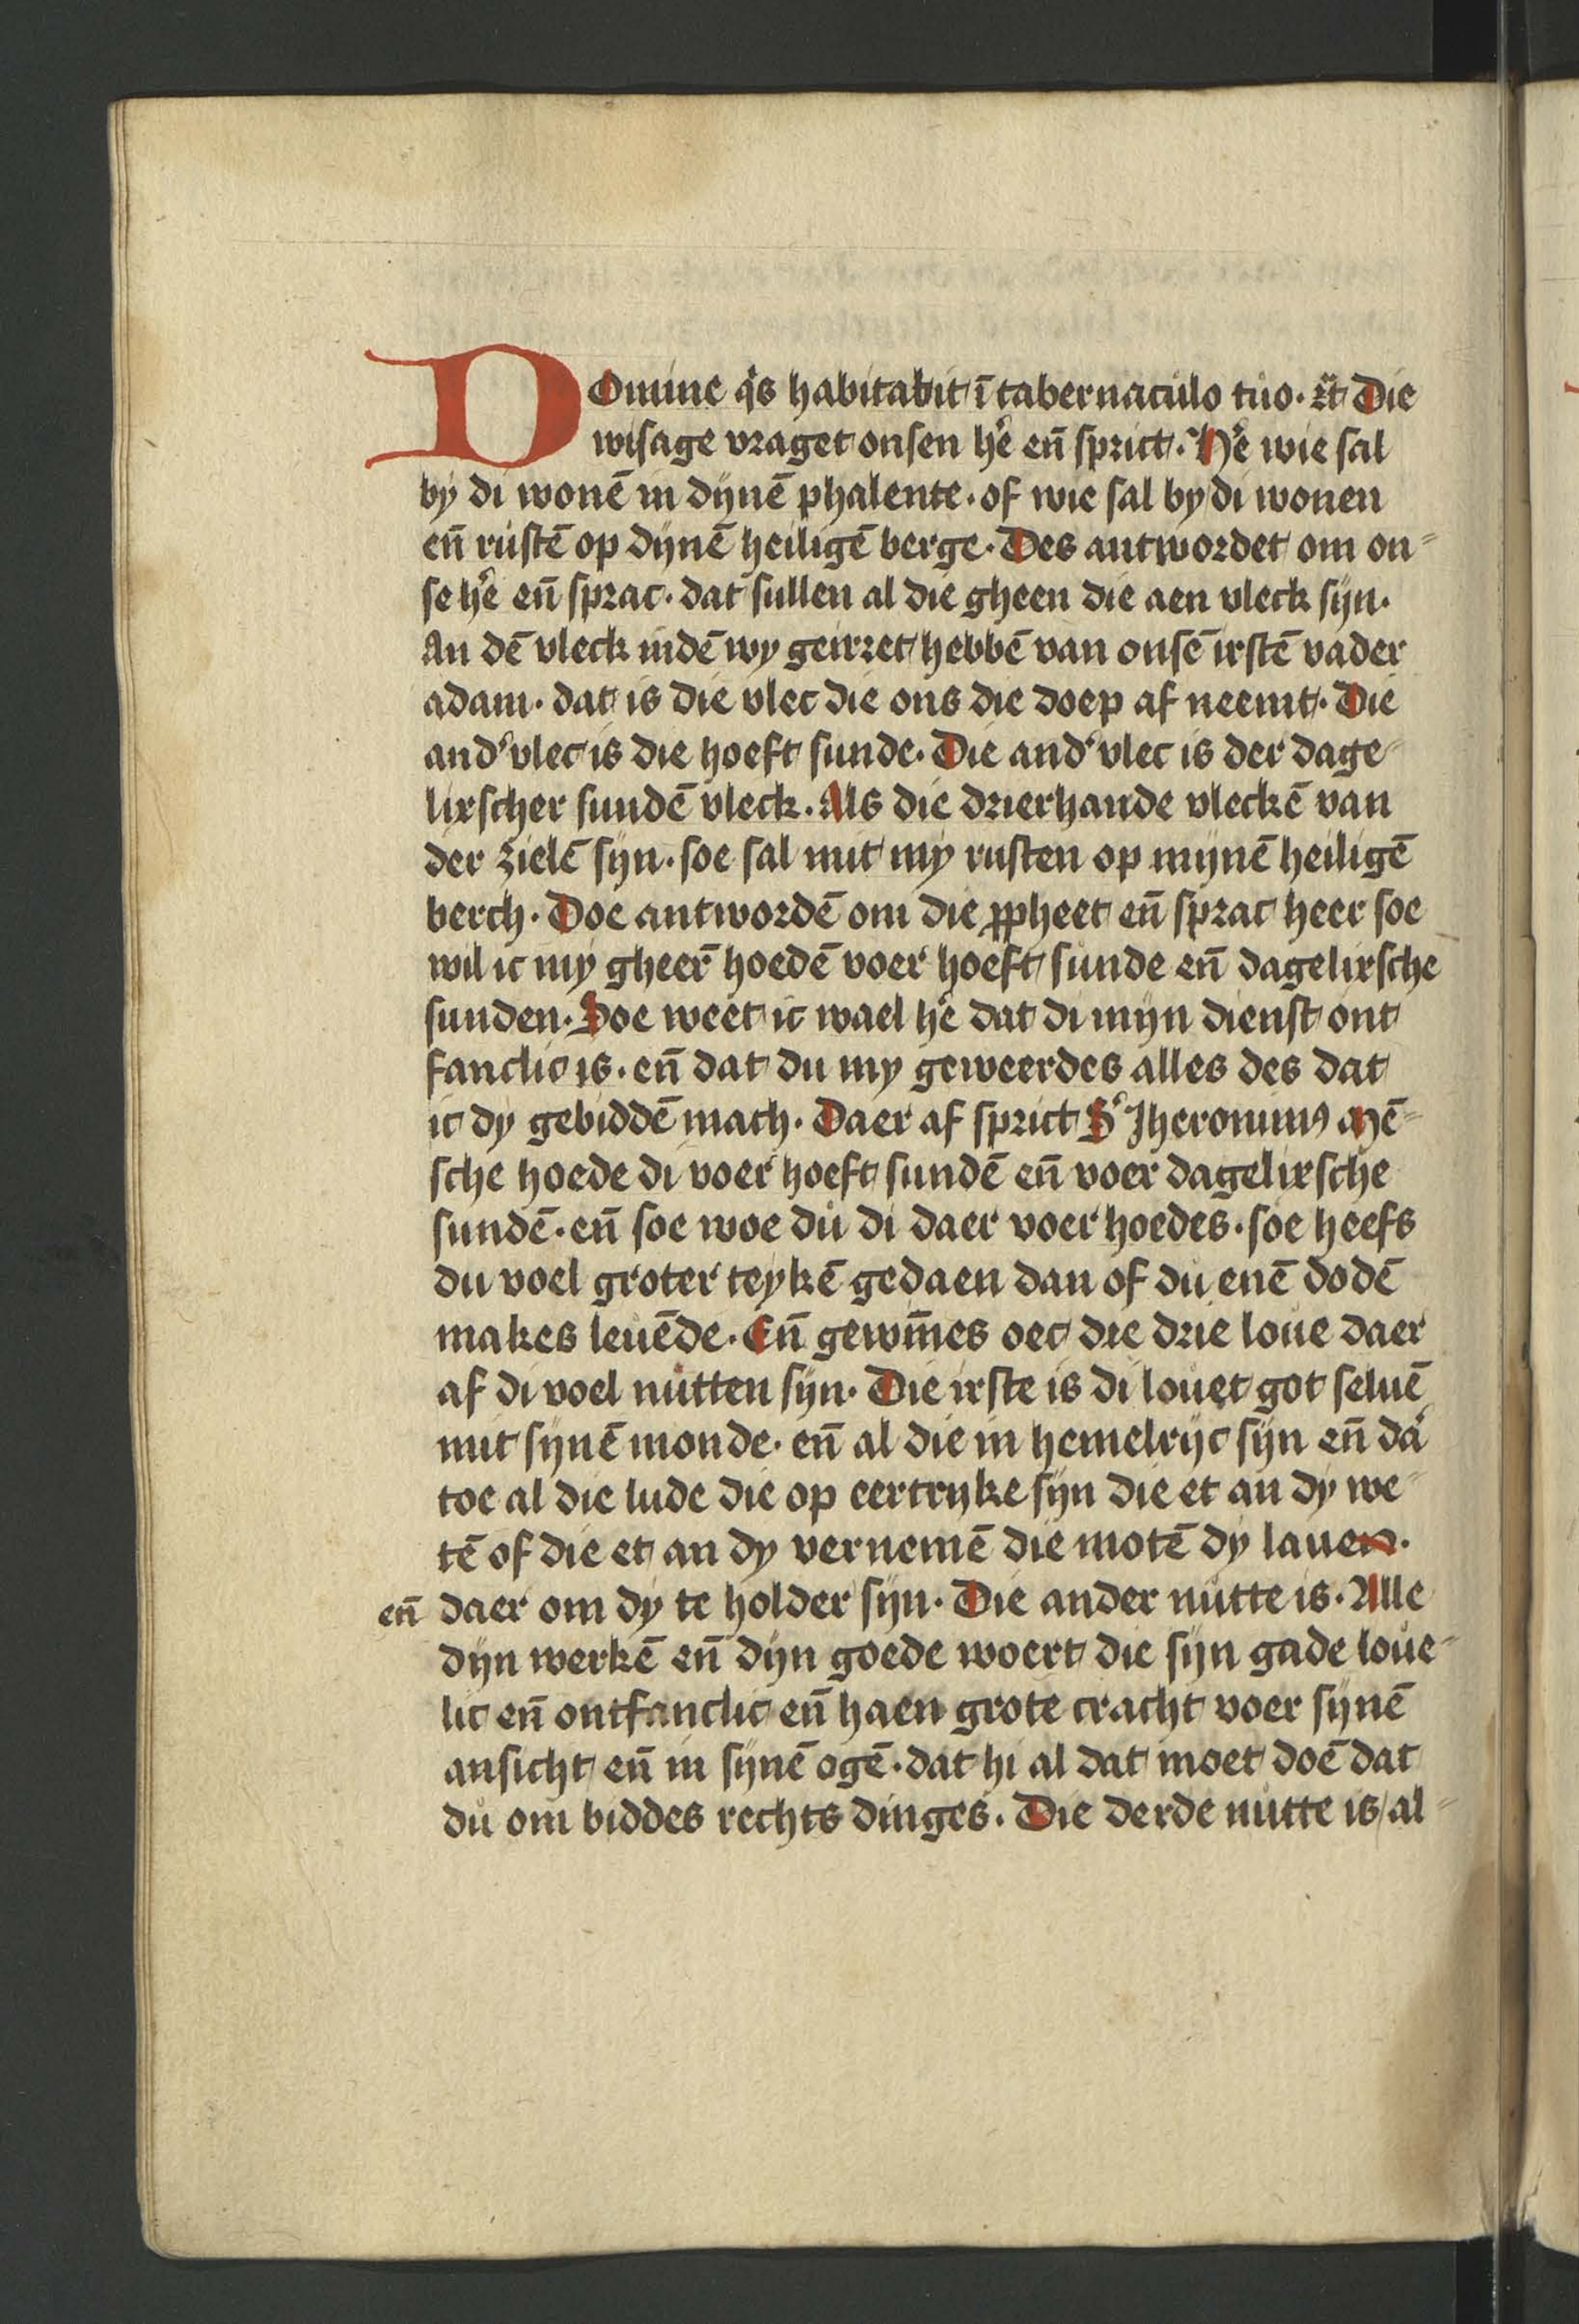 DOmine qͥs habitabit ī tabernaculo tuo · ꝛc̄t Die
wisage vraget onsen he᷒ eñ sprict · He᷒ wie sal
by di wonē in dijnē phalente · of wie sal by di wonen
eñ rustē op dijnē heiligē berge · Des antwordet om on⸗
se he᷒ eñ sprac · dat sullen al die gheen die aen vleck sijn ·
An dē vleck indē wy geirret hebbē van onsē irstē vader
adam · dat is die vlec die ons die doep af neemt · Die
and᷒ vlec is die hoeft sunde · Die and᷒ vlec is der dage⸗
lixscher sundē vleck · Als die drierhande vleckē van
der zielē sijn · soe sal mit my rusten op mijnē heiligē
berch · Doe antwordē om die ꝓpheet eñ sprac heer soe
wil ic my gheer̄ hoedē voer hoeft sunde eñ dagelixsche
sunden · Soe weet ic wael he᷒ dat di mijn dienst ont
fanclic is · eñ dat du my geweerdes alles des dat
ic dy gebiddē mach · Daer af sprict S᷒ Jheronimꝰ Mē⸗
sche hoede di voer hoeft sundē eñ voer dagelixsche
sundē · eñ soe woe du di daer voer hoedes · soe heefs
du voel groter teykē gedaen dan of du enē dodē
makes leuēde · Eñ gewīnes oec die drie loue daer
af di voel nutten sijn · Die irste is di louet got seluē
mit sijnē monde · eñ al die in hemelrijc sijn eñ da᷒
toe al die lude die op eertrijke sijn die et an dy we⸗
tē of die et an dy vernemē die motē dy lauen ·
eñ daer om dy te holder sijn · Die ander nutte is · Alle
dijn werkē eñ dijn goede woert die sijn gade loue⸗
lic eñ ontfanclic eñ haen grote cracht voer sijnē
ansicht eñ in sijnē ogē · dat hi al dat moet doē dat
du om biddes rechts dinges · Die derde nutte is / al⸗